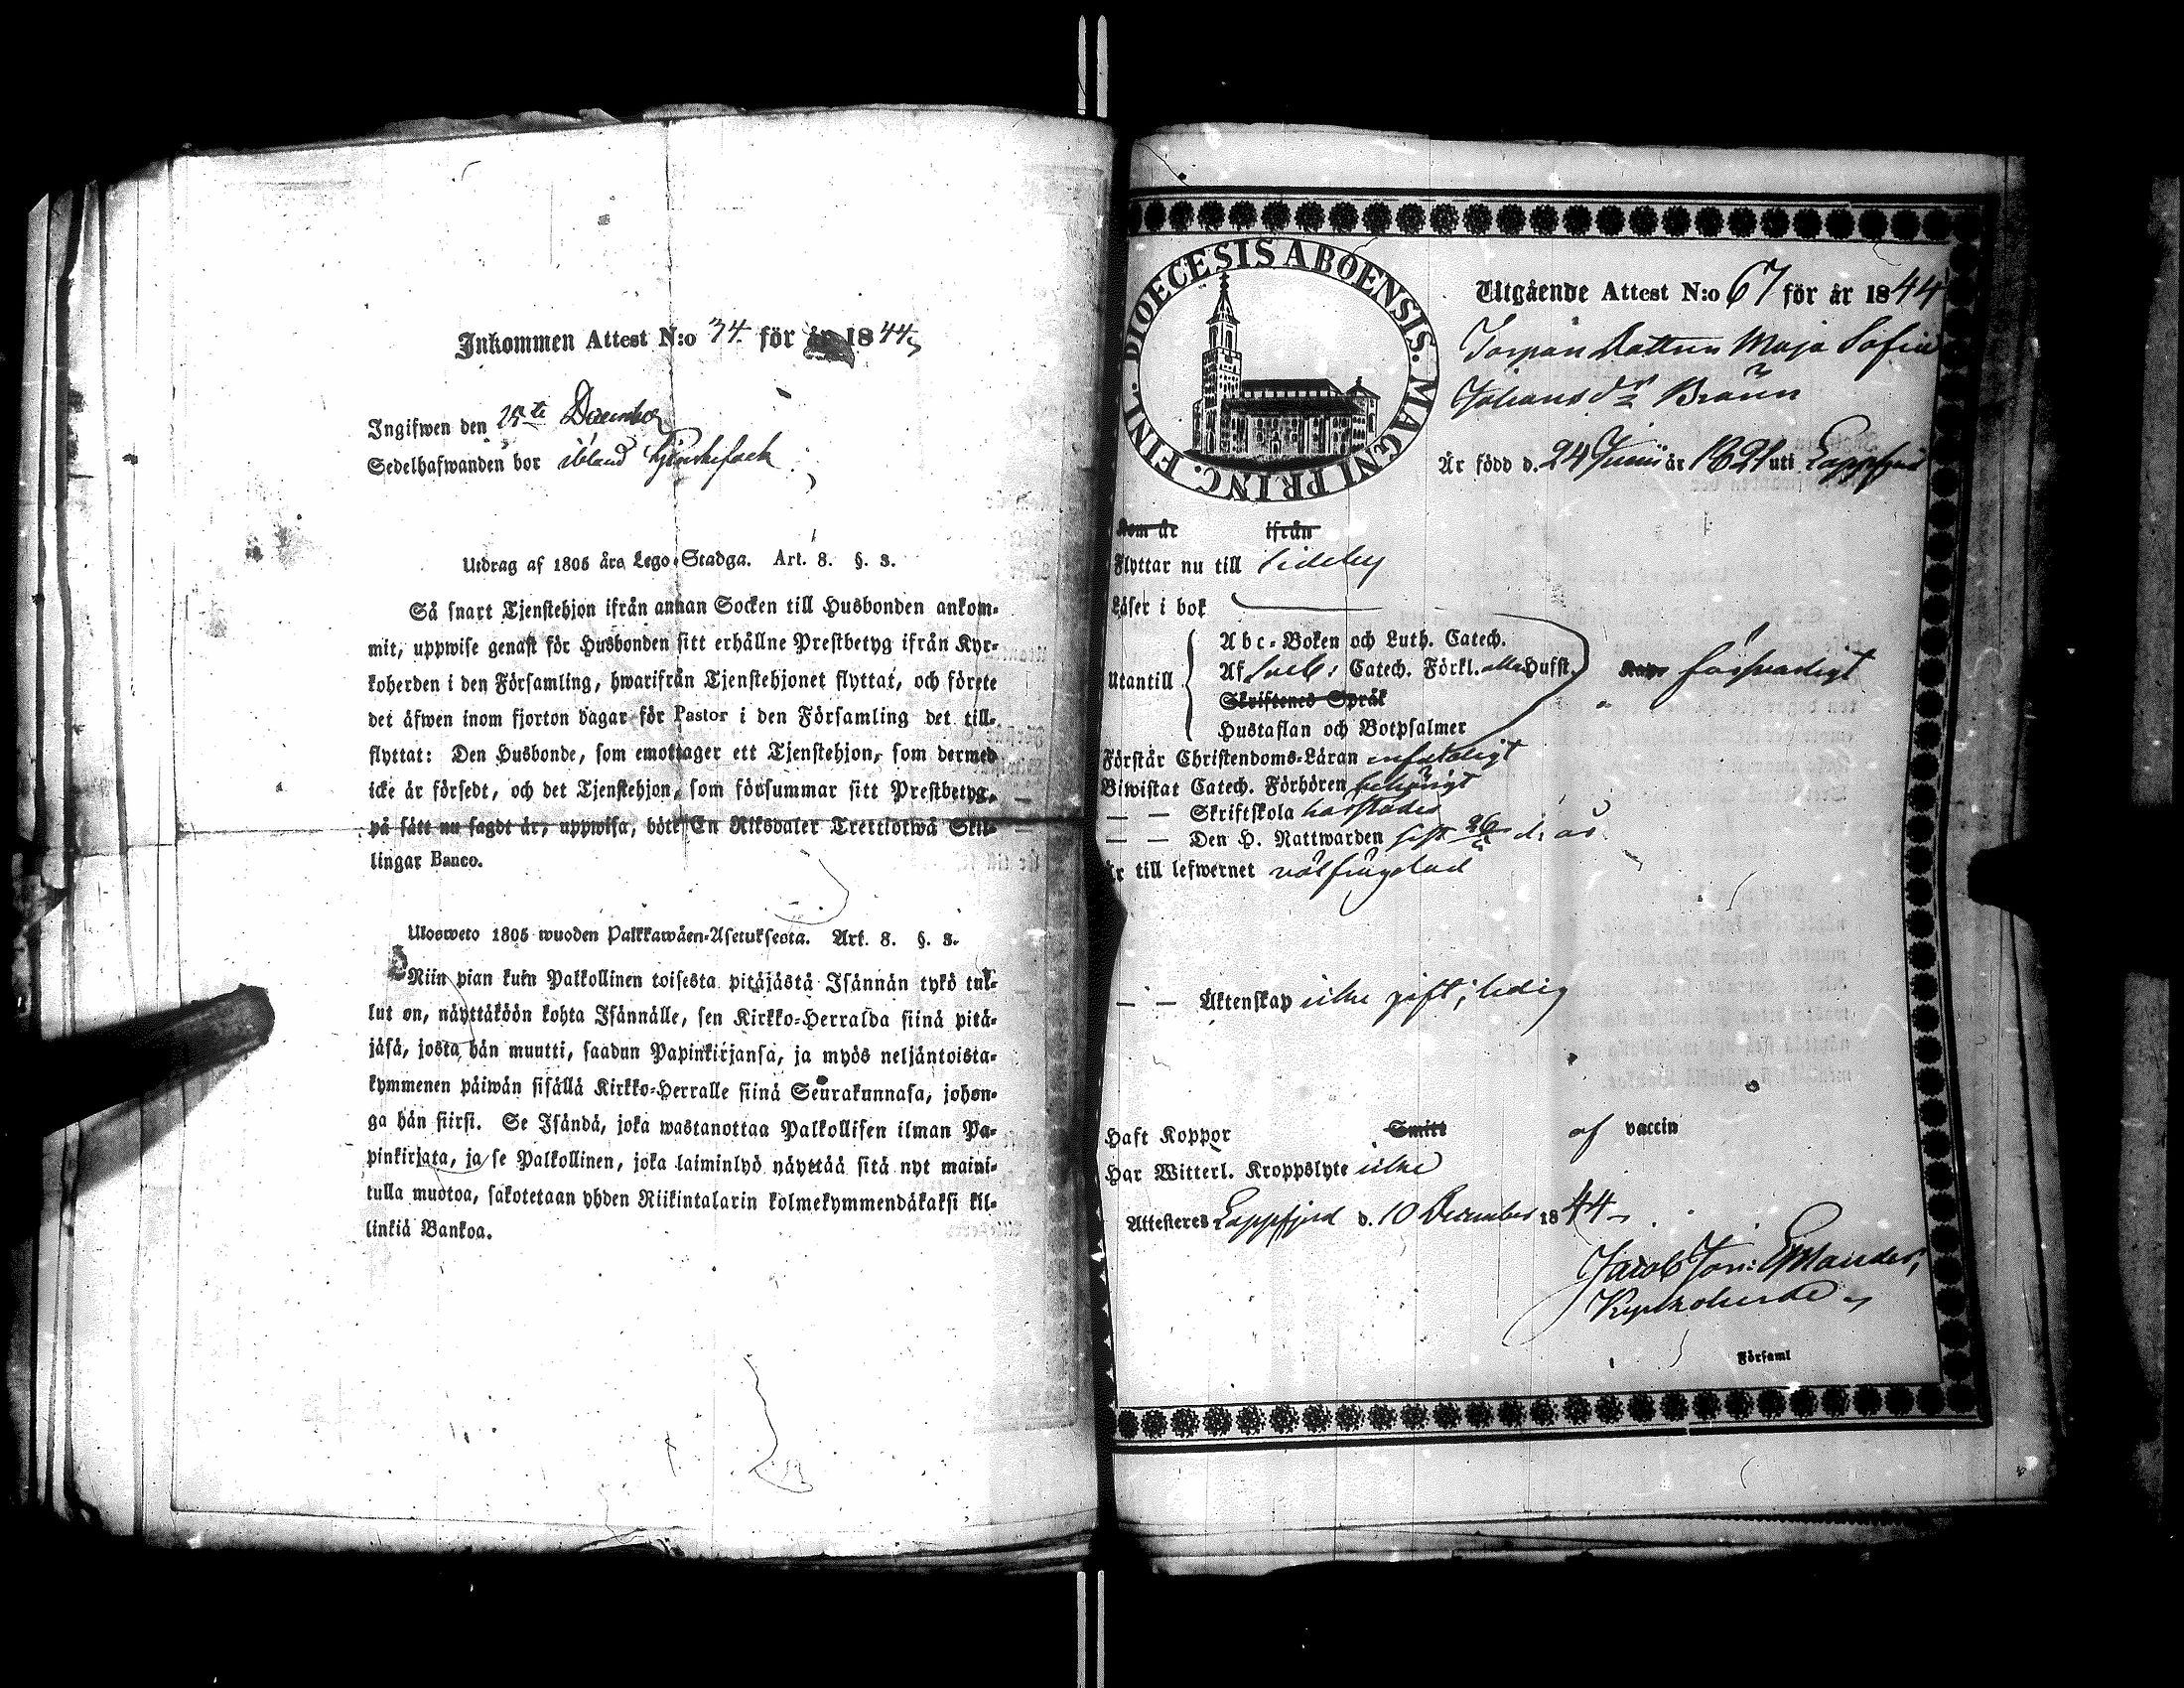 Inkommen Attest N:o 34. för år 1844
Ingifwen den 25te December
Sedelhafwanden bor ibland
Utdrag af 1805 års Lego-Stadga. Art. 8. §. 3.
Så snart Tjenstehjon ifrån annan Socken till Husbonden ankom-
mit, uppwise genast för Husbonden sitt erhållne Prestbetyg ifrån Kyr-
koherden i den Församling, hwarifrån Tjenstehjonet flyttat, och förete
det äfwen inom fjorton dagar för Pastor i den Församling det till-
flyttat: Den Husbonde, som emottager ett Tjenstehjon, som dermed
icke är försedt, och det Tjenstehjon, som försummar sitt Prestbetyg,
på sätt nu sagdt är, uppwisa, böte En Riksdaler Trettiotwå Skil-
lingar Banco.
Ulosweto 1805 wuoden Palkkawäen-Asetuksesta. Art. 8. §. 3.
Niin pian kuin Palkollinen toisesta pitäjästä Isännän tykö tul-
lut on, näyttäköön kohta Isännälle, sen Kirkko-Herralda siinä pitä-
jäsä, josta hän muutti, saadun Papinkirjansa, ja myös neljäntoista-
kymmenen päiwän sisällä Kirkko-Herralle siinä Seurakunnasa, johon-
ga hän siirsi. Se Isändä, joka wastanottaa Palkollisen ilman Pa-
pinkirjata, ja se Palkollinen, joka laiminlyö näyttää sitä nyt maini-
tulla muotoa, sakotetaan yhden Riikintalarin kolmekymmendäkaksi kil-
linkiä Bankoa.
FINL. DIOECESIS ABOENSIS. MAGNI PRINC.
Utgående Attest N:o 67 för år 1844
Torpare Dottren Maja Sofia
Johansdr Bränn
Är född d. 24 Junii år 1821 uti Lappfjerd
Kom år ifrån
Flyttar nu till Sideby
Läser i bok
Utantill
Abc-Boken och Luth. Catech.
Af Sveb: Catech. Förkl. Hufst.
försvarligt
Skriftenes Språk
Hustaflan och Botpsalmer
Förstår Christendoms-Läran
Biwistat Catech. Förhören behörigt
— — Skriftskola
— — Den H. Nattwarden sist 26 d: år
Är till lefwernet välfrägdad
— — Äktenskap icke gift; ledig
Haft Koppor Smitt af vaccin
Har Witterl. Kroppslyte icke
Attesteras Lappfjerd d. 10 December 1844
Jacob Jon:
Kyrkoherde
Församl